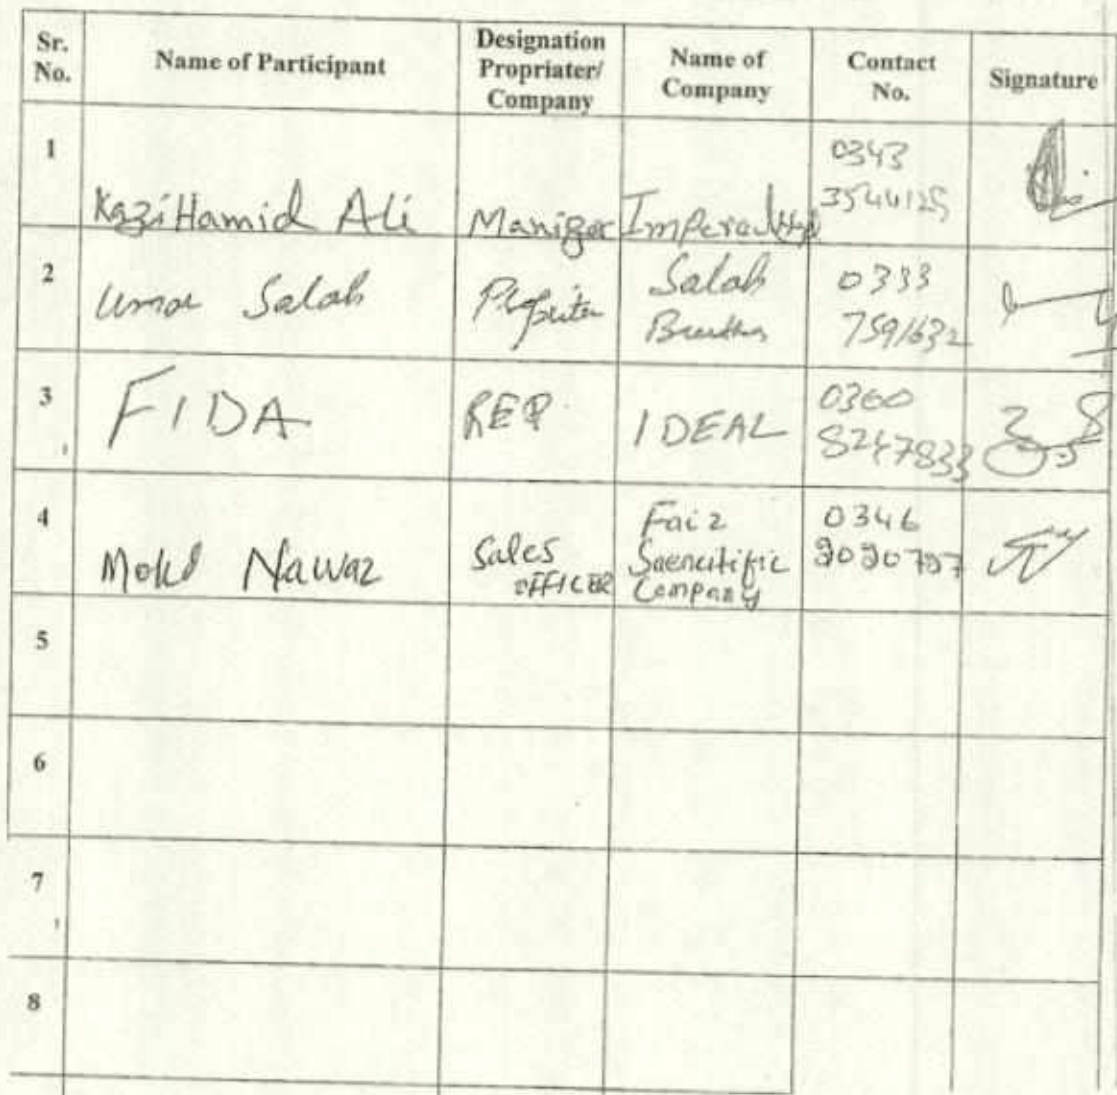 Sr. No.
Name of Participant
Designation Propriater/ Company
Name of Company
Contact No.
Signature
1
Kazi Hamid Ali
Maniger
0343
3544125
2
Umar Salah
Salah
0333
7591632
3
FIDA
REP
IDEAL
0300
8247833
4
Mohd Nawaz
Sales
OFFICER
Faiz
Saencitific
Company
0346
5
6
7
8